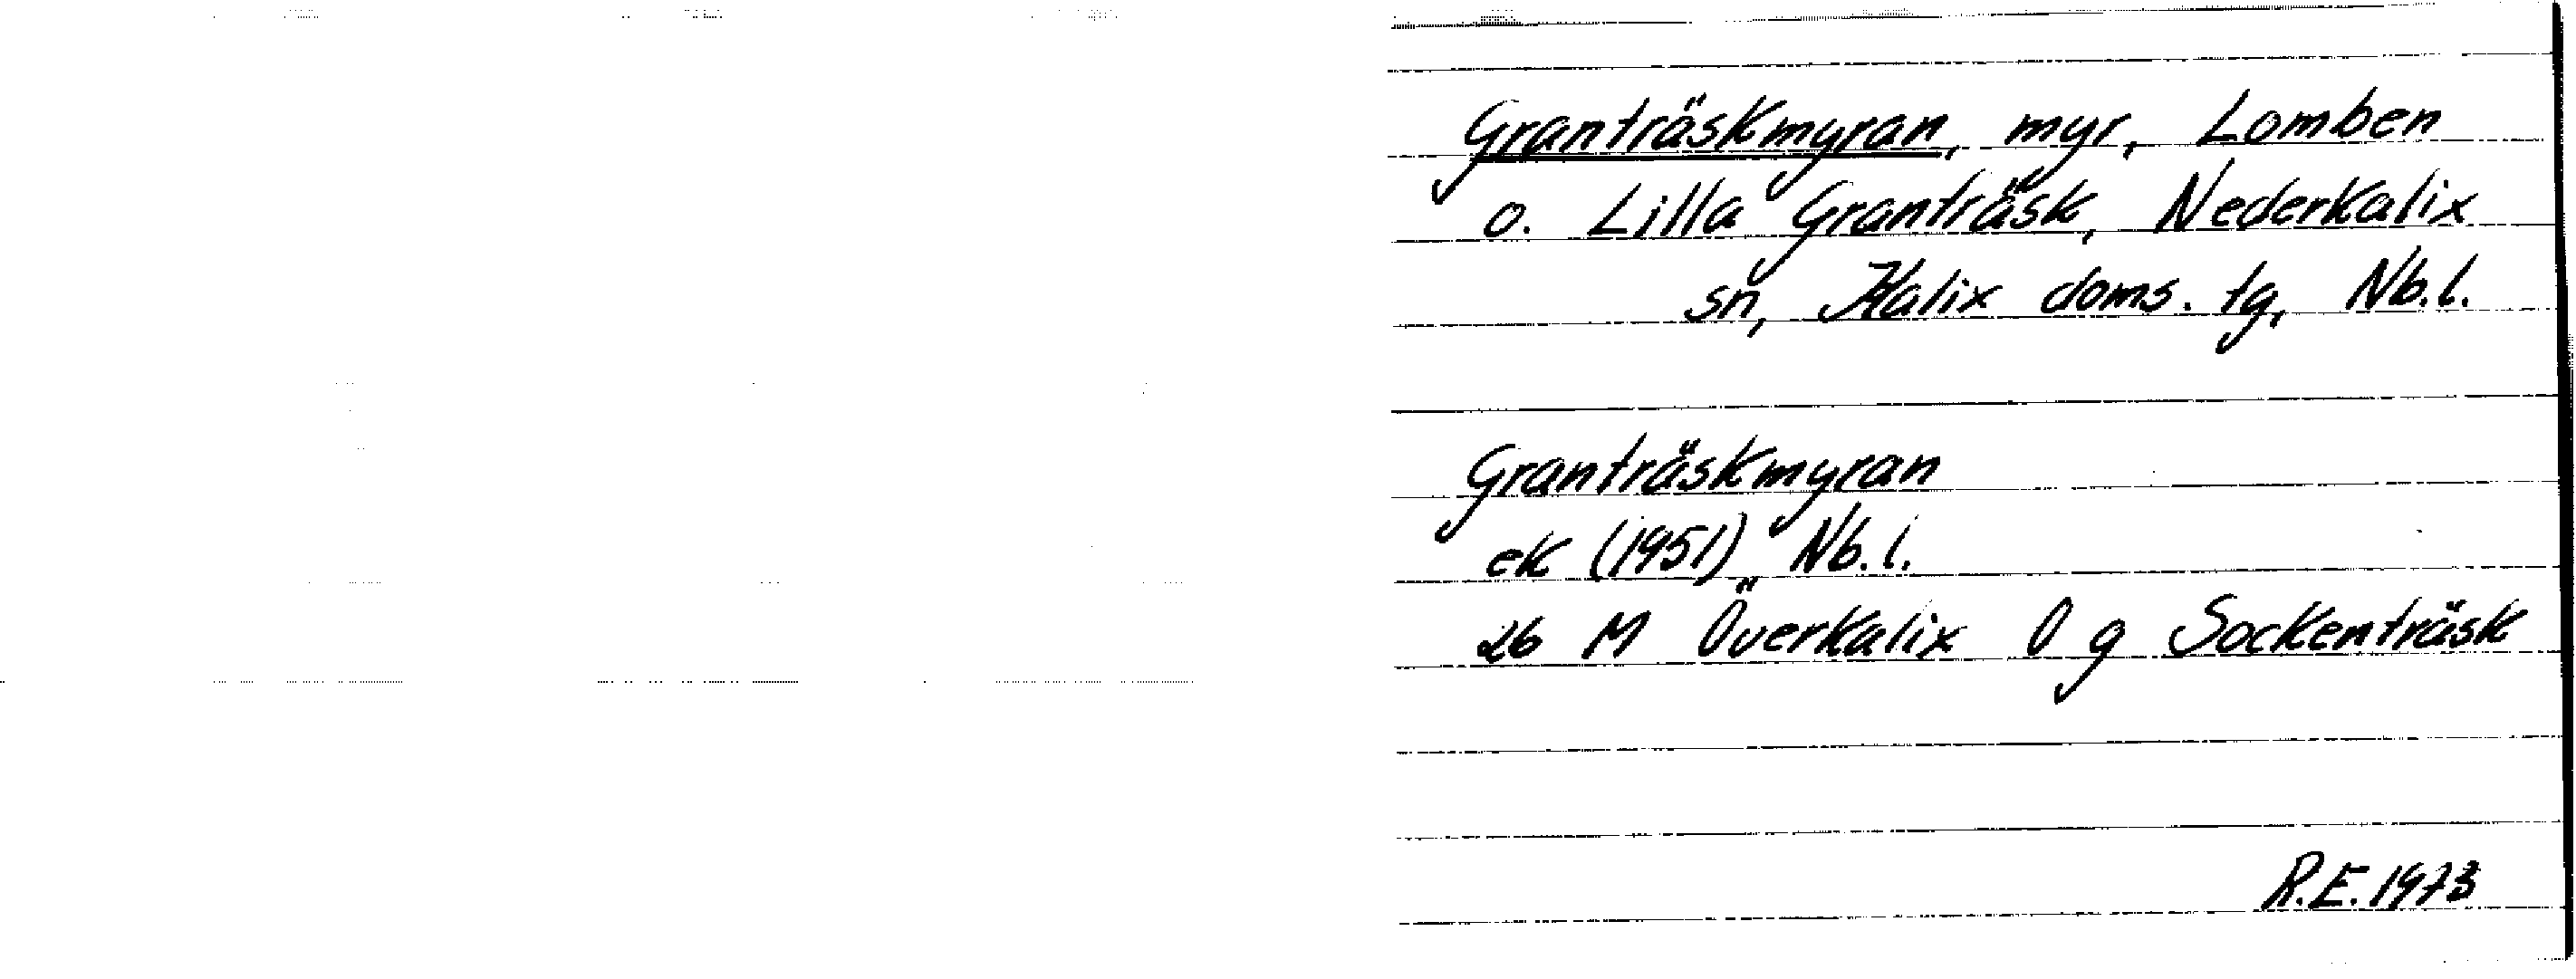 Granträskmyran, myr, Lomben
o. Lilla Granträsk, Nederkalix
sn, Kalix doms. tg, Nb.l.
Granträskmyran
ek (1951) Nb.l.
26 M Överkalix O g Sockenträsk
R.E. 1973